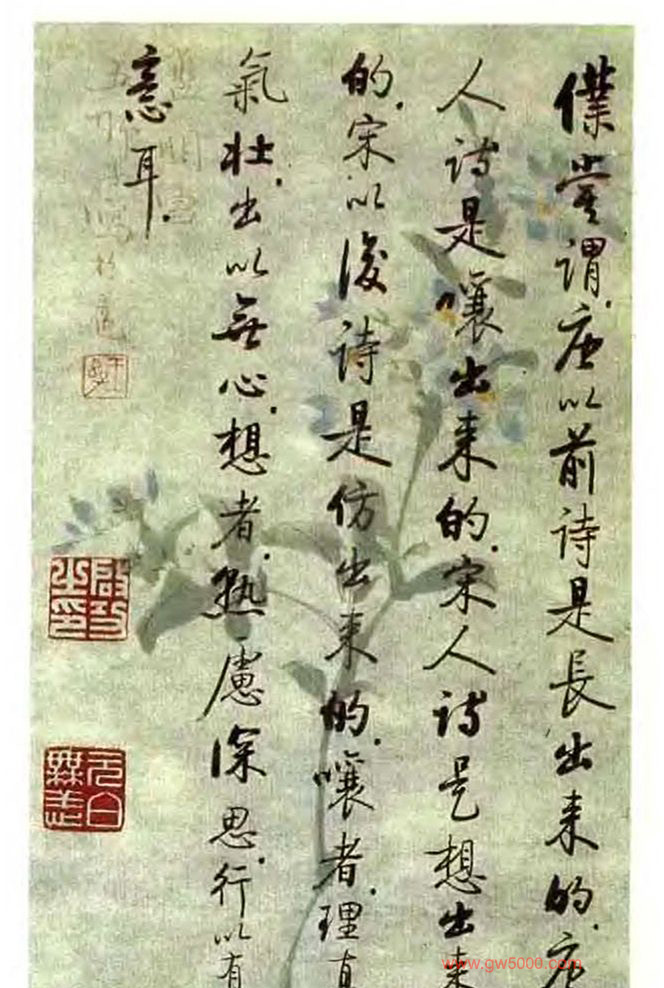 僕嘗謂唐以前詩是長出来的唐
人詩是嚷出来的宋人詩是想出来
的宋以後詩是仿出来的嚷者理直
氣壯出以無心想者熟慮深思行以有
意耳
啟功之印
元白無恙
www.gw5000.com